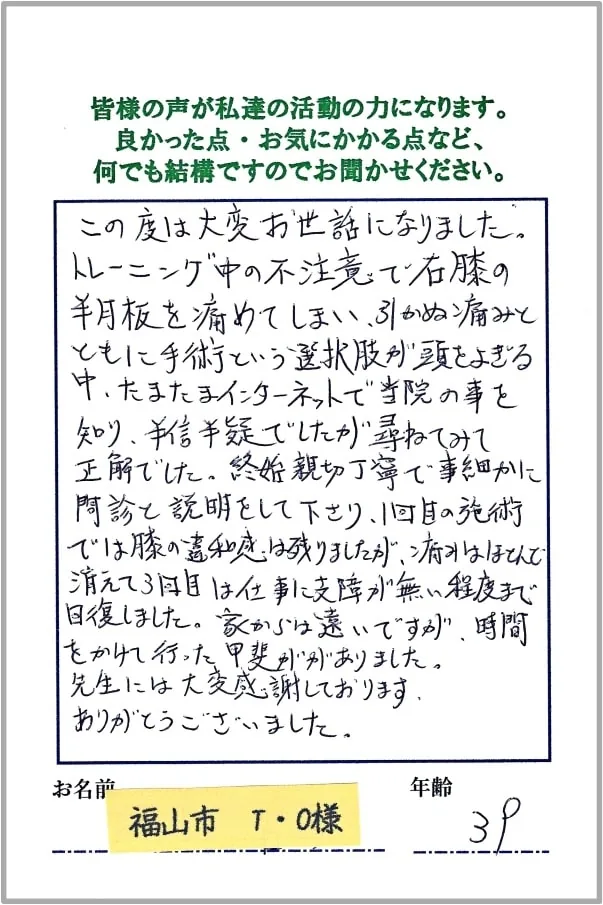 皆様の声が私達の活動の力になります。
良かった点・お気にかかる点など、
何でも結構ですのでお聞かせください。
この度は大変お世話になりました。
トレーニング中の不注意で右膝の
半月板を痛めてしまい、引かぬ痛みと
ともに手術という選択肢が頭をよぎる
中、たまたまインターネットで当院の事を
知り、半信半疑でしたが尋ねてみて
正解でした。終始親切丁寧で事細かに
問診と説明をして下さり、1回目の施術
では膝の違和感は残りましたが、痛みはほとんど
消えて3回目は仕事に支障が無い程度まで
回復しました。家からは遠いですが、時間
をかけて行った甲斐ががありました。
先生には大変感謝しております.
ありがとうございました。
お名前
福山市 T・O様
年齢
39